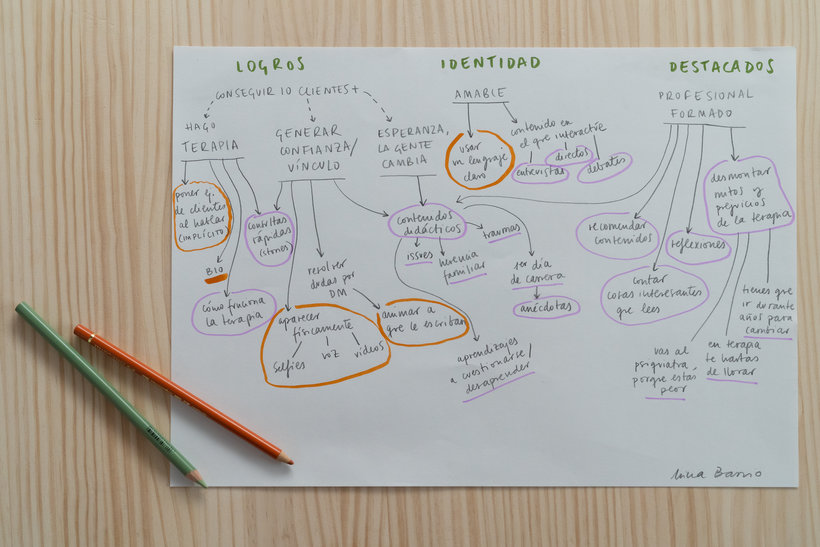 LOGROS
CONSEGUIR 10 CLIENTES +
HAGO
TERAPIA
GENERAR
CONFIANZA/
VÍNCULO
ESPERANZA,
LA GENTE
CAMBIA
poner ej.
de clientes
al hablar
(IMPLÍCITO)
BIO
cómo funciona
la terapia
consultas
rápidas
(stories)
resolver
dudas por
DM
aparecer
físicamente
selfies
voz
videos
animar a
que le escriban
contenidos
didácticos
issues
herencia
familiar
traumas
ser día
de carrera
anécdotas
aprendizajes
a cuestionarse/
desaprender
IDENTIDAD
AMABLE
usar
un lenguaje
claro
contenido en
el que interactúe
entrevistas
directos
debates
DESTACADOS
PROFESIONAL
FORMADO
recomendar
contenidos
contar
cosas interesantes
que lees
reflexiones
desmontar
mitos y
prejuicios
de la terapia
vas al
psiquiatra
porque estás
peor
en terapia
te hartas
de llorar
tienes que
ir durante
años para
cambiar